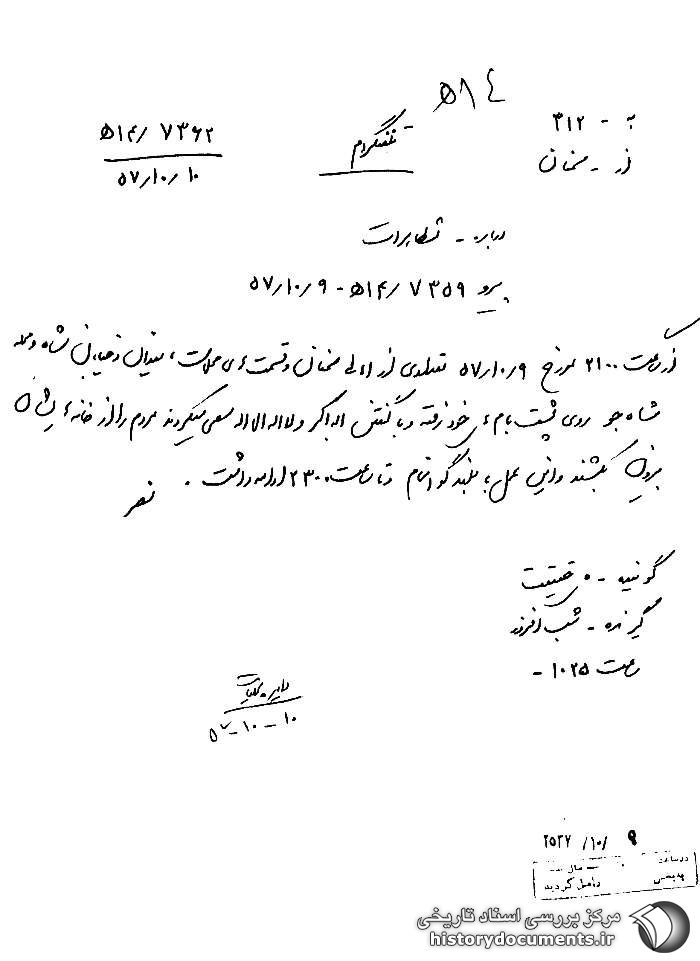 ۵۱۴
به - ۳۱۲
از - سمنان
تلفنگرام
۷۳۶۲ /۵۱۴ھ
۵۷/۱۰/۱۰
درباره - تظاهرات
پیرو ۷۳۵۹ /۵۱۴ھ - ۵۷/۱۰/۹
از ساعت ۲۱۰۰ مورخ ۵۷/۱۰/۹ تعدادی از اهالی سمنان و قسمت های محلات، خیابان شاه و محله
شاه جو روی پشت بام های خود رفته و با گفتن اله اکبر و لا اله الا اله سعی میکردند مردم را از خانه ایشان
بیرون بکشند و این عمل با بلندگو انجام و تا ساعت ۲۳۰۰ ادامه داشت.
نصر
گوینده - حقیقت
گیرنده - شب افروز
ساعت ۱۰۲۵ -
۵۷-۱۰-۱۰
۲۵۳۷ /۱۰/ ۹
در ساعت
بخش
واصل گردید
مرکز بررسی اسناد تاریخی
historydocuments.ir